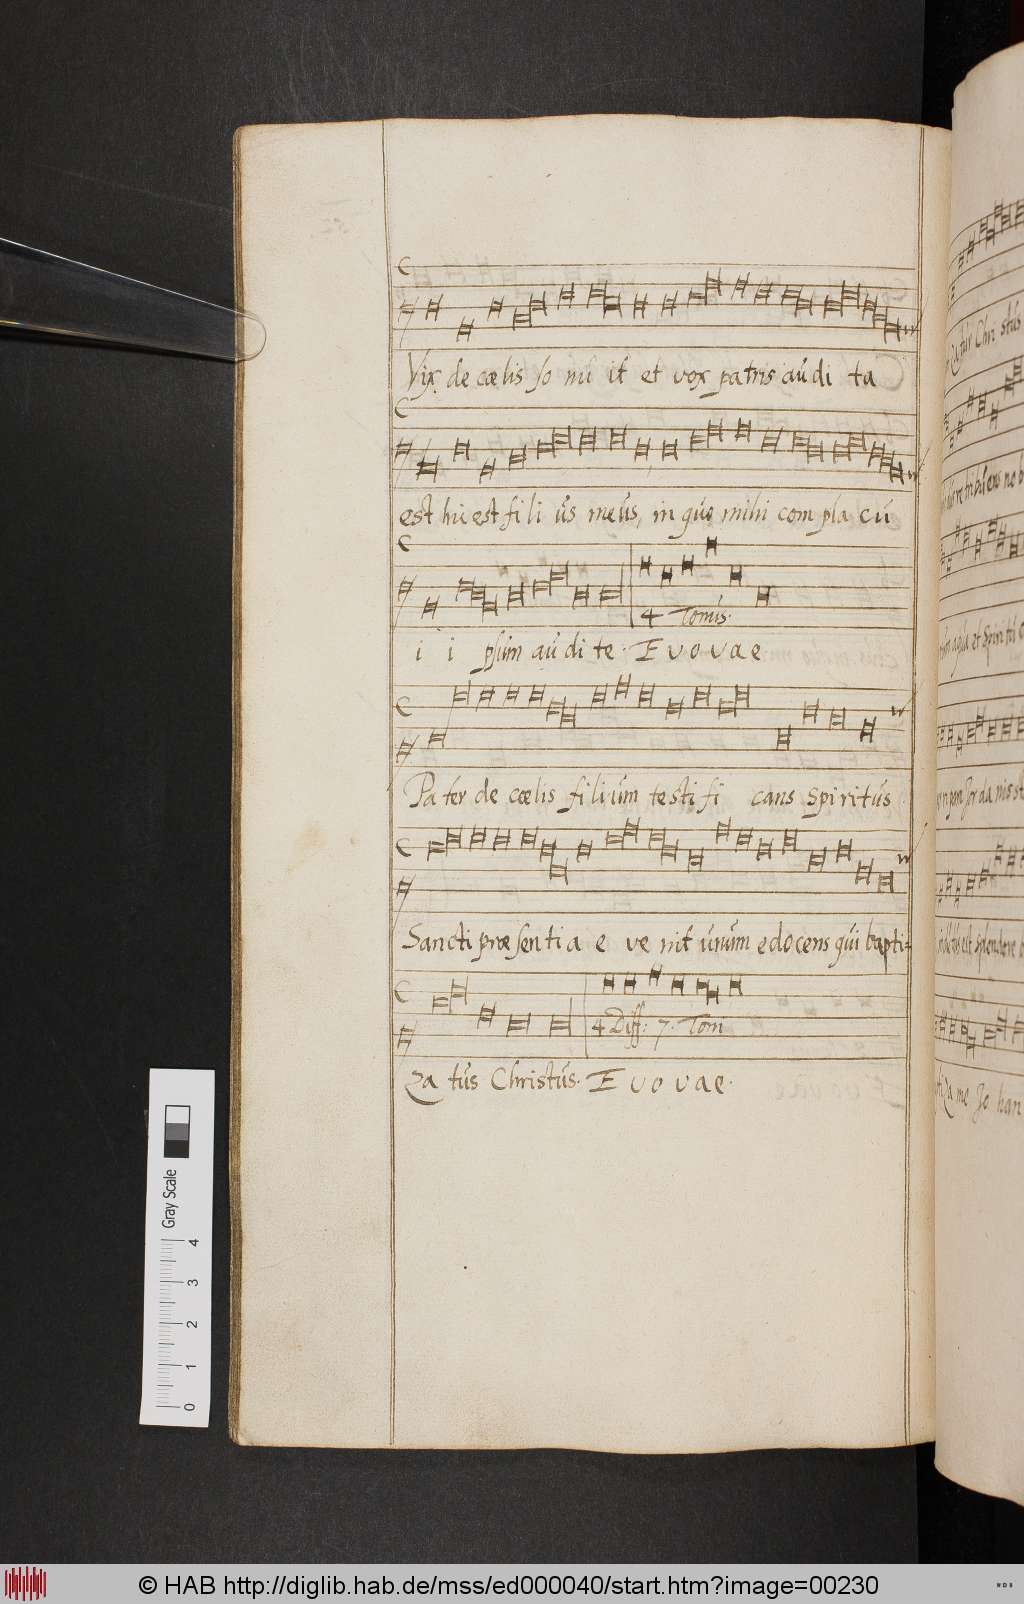 Vix de cœlis so nu it et vox patris audi ta
est hic est fili us meus, in quo mihi com pla cu
i i psum au di te. E v o v a e
4 Tonus.
Pa ter de cœlis filium testi fi cans Spiritus
Sancti præ sen ti a e ve nit unum edocens qui bapti=
4 Diff: 7. Toni
za tus Christus. E v o v a e.
Gray Scale
4
3
2
1
0
© HAB http://diglib.hab.de/mss/ed000040/start.htm?image=00230